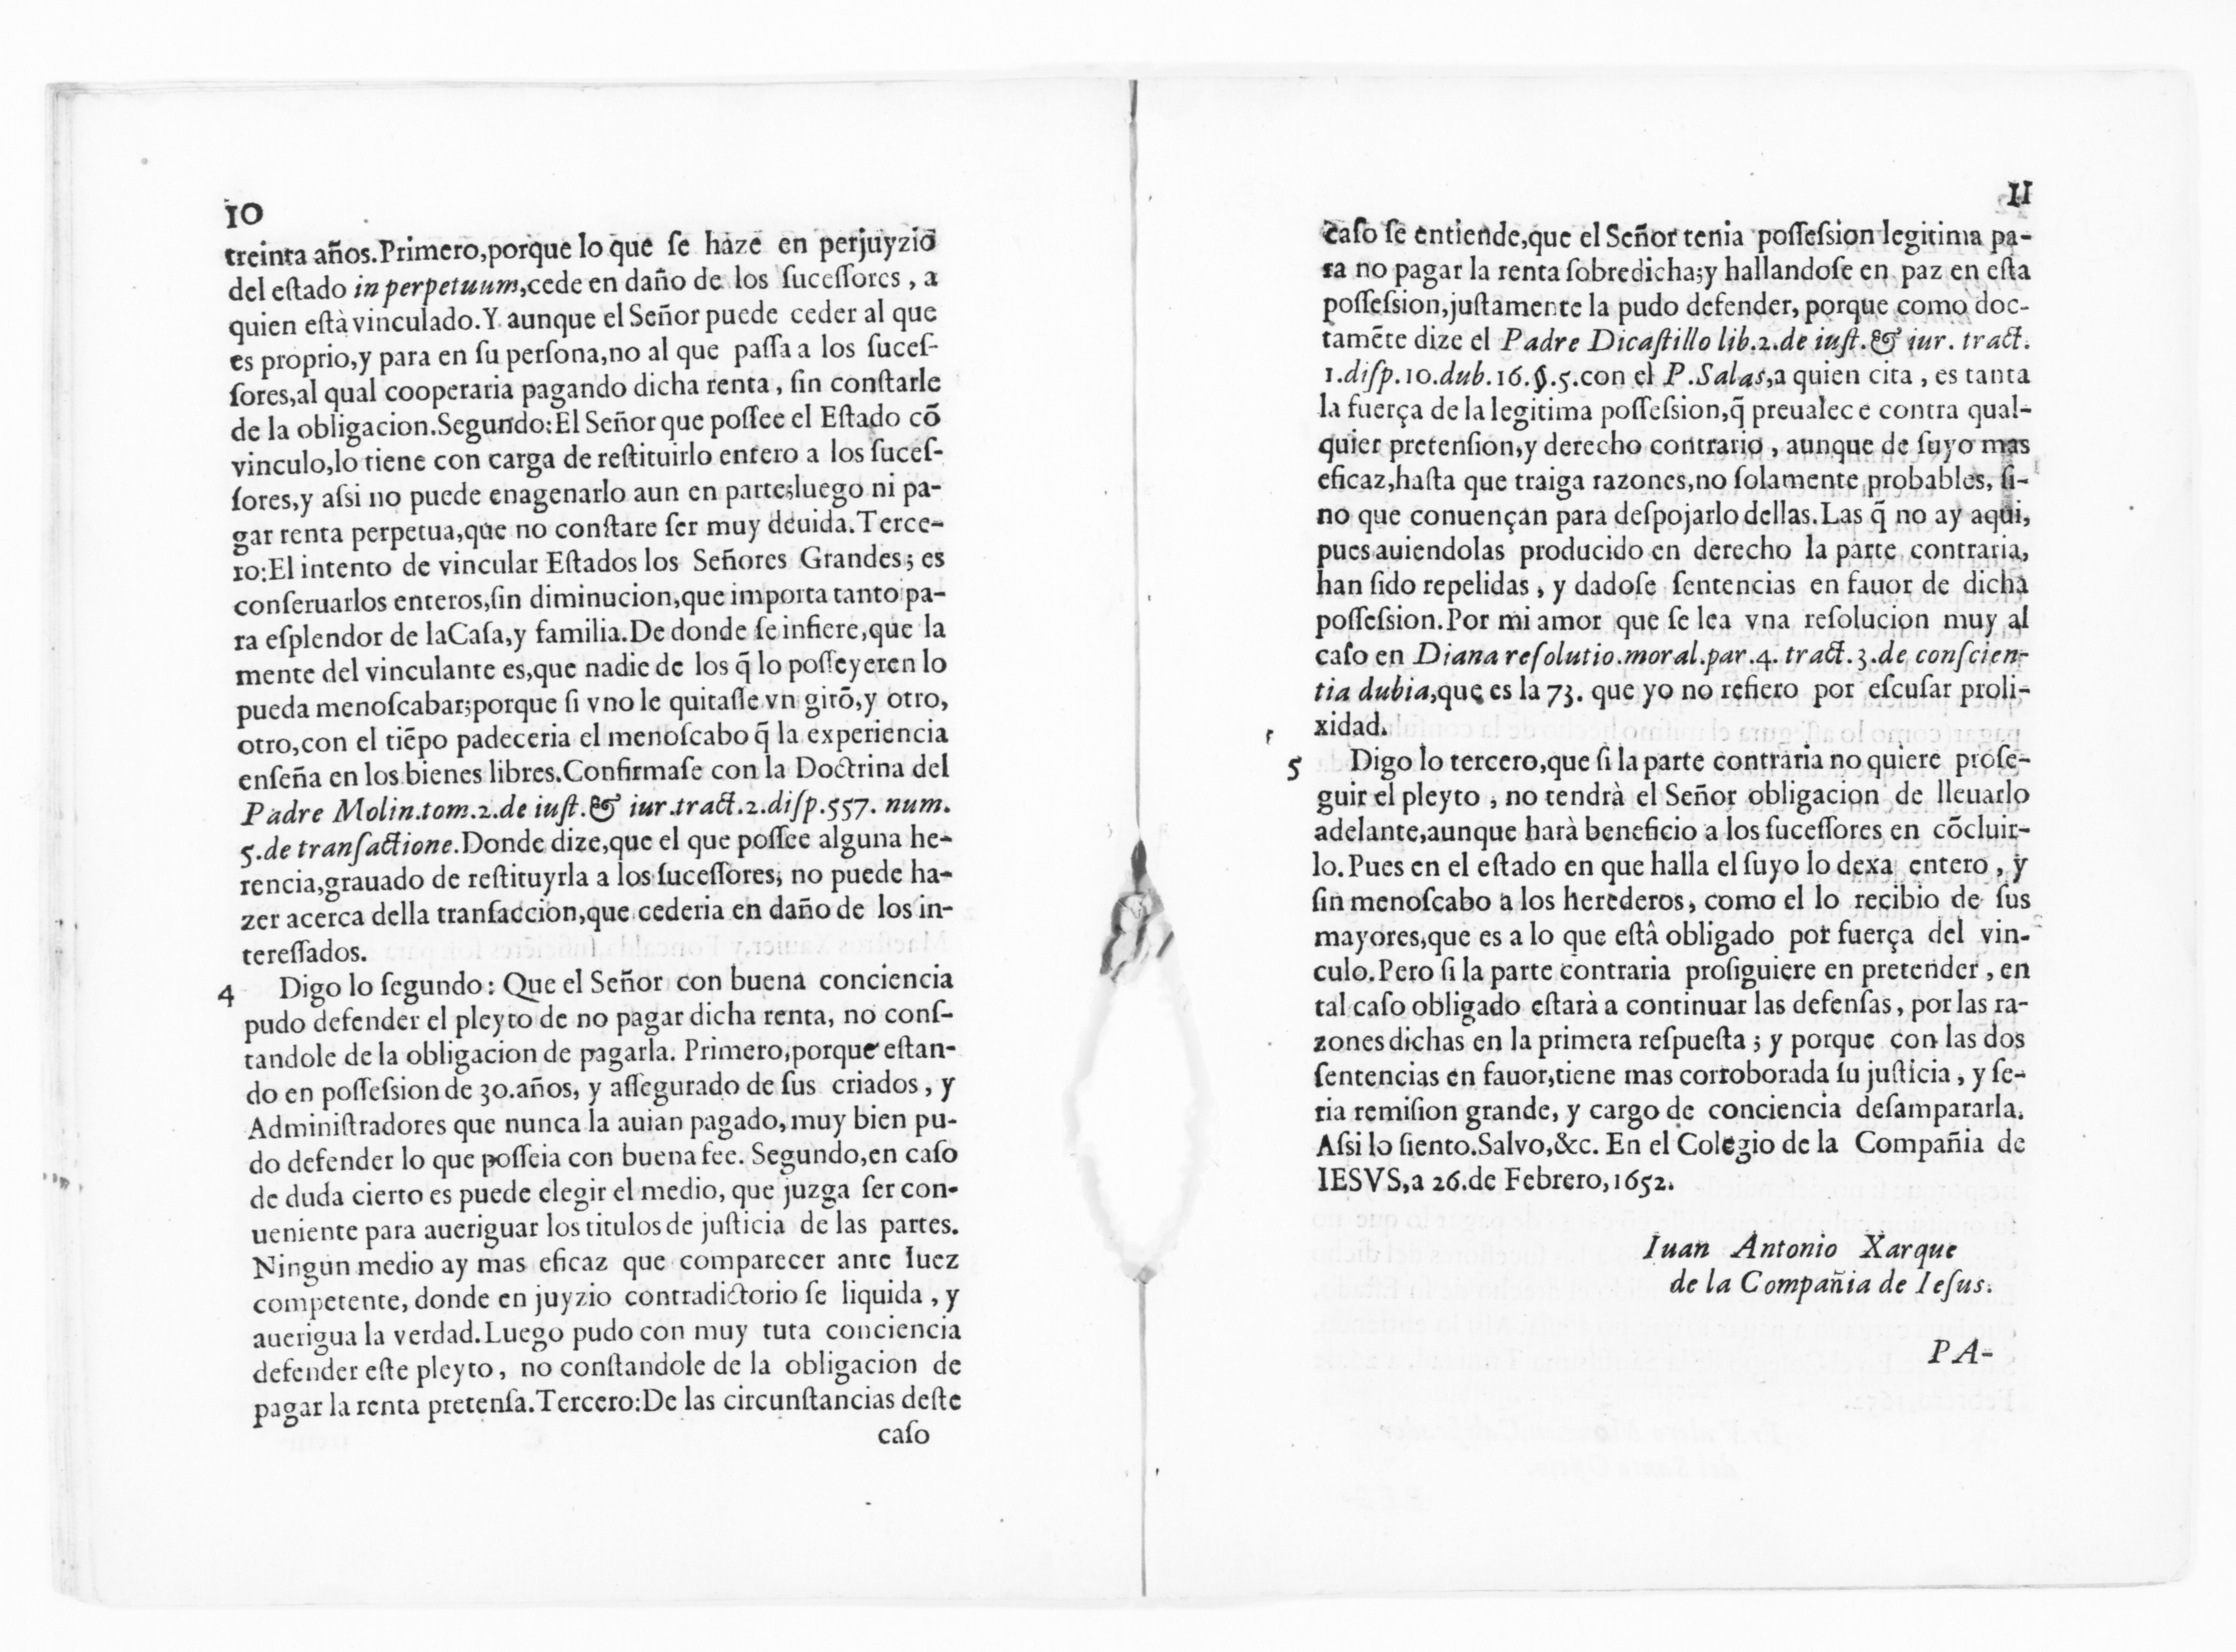 10
treinta años.Primero,porque lo que ſe haze en perjuyzio
del eſtado in perpetuum,cede en daño de los ſuceſſores , a
quien eſtà vinculado.Y aunque el Señor puede ceder al que
es proprio,y para en ſu perſona,no al que paſſa a los ſuceſ-
ſores,al qual cooperaria pagando dicha renta , ſin conſtarle
de la obligacion.Segundo:El Señor que poſſee el Eſtado cõ
vinculo,lo tiene con carga de reſtituirlo entero a los ſuceſ-
ſores,y aſsi no puede enagenarlo aun en parte;luego ni pa-
gar renta perpetua,que no conſtare ſer muy deuida.Terce-
ro:El intento de vincular Eſtados los Señores Grandes; es
conſeruarlos enteros,ſin diminucion,que importa tanto pa-
ra eſplendor de laCaſa,y familia.De donde ſe infiere,que la
mente del vinculante es,que nadie de los q̃ lo poſſeyeren lo
pueda menoſcabar;porque ſi vno le quitaſſe vn girõ,y otro,
otro,con el tiẽpo padeceria el menoſcabo q̃ la experiencia
enſeña en los bienes libres.Confirmaſe con la Doctrina del
Padre Molin.tom.2.de iuſt.& iur.tract.2.diſp.557. num.
5.de tranſactione.Donde dize,que el que poſſee alguna he-
rencia,grauado de reſtituyrla a los ſuceſſores, no puede ha-
zer acerca della tranſaccion,que cederia en daño de los in-
tereſſados.
4 Digo lo ſegundo: Que el Señor con buena conciencia
pudo defender el pleyto de no pagar dicha renta, no conſ-
tandole de la obligacion de pagarla. Primero,porque eſtan-
do en poſſeſsion de 30.años, y aſſegurado de ſus criados , y
Adminiſtradores que nunca la auian pagado, muy bien pu-
do defender lo que poſſeia con buena fee. Segundo,en caſo
de duda cierto es puede elegir el medio, que juzga ſer con-
ueniente para aueriguar los titulos de juſticia de las partes.
Ningun medio ay mas eficaz que comparecer ante Iuez
competente, donde en juyzio contradictorio ſe liquida , y
auerigua la verdad.Luego pudo con muy tuta conciencia
defender eſte pleyto , no conſtandole de la obligacion de
pagar la renta pretenſa.Tercero:De las circunſtancias deſte
caſo
11
caſo ſe entiende,que el Señor tenia poſſeſsion legitima pa-
ra no pagar la renta ſobredicha;y hallandoſe en paz en eſta
poſſeſsion,juſtamente la pudo defender, porque como doc-
tamẽte dize el Padre Dicaſtillo lib.2.de iuſt.& iur. tract.
1.diſp.10.dub.16.§.5.con el P.Salas,a quien cita , es tanta
la fuerça de la legitima poſſeſsion,q̃ preualece contra qual-
quier pretenſion,y derecho contrario , aunque de ſuyo mas
eficaz,haſta que traiga razones,no ſolamente probables, ſi-
no que conuençan para deſpojarlo dellas.Las q̃ no ay aqui,
pues auiendolas producido en derecho la parte contraria,
han ſido repelidas , y dadoſe ſentencias en fauor de dicha
poſſeſsion.Por mi amor que ſe lea vna reſolucion muy al
caſo en Diana reſolutio.moral.par.4. tract.3.de conſcien-
tia dubia,que es la 73. que yo no refiero por eſcuſar proli-
xidad.
5 Digo lo tercero,que ſi la parte contraria no quiere proſe-
guir el pleyto , no tendrà el Señor obligacion de lleuarlo
adelante,aunque harà beneficio a los ſuceſſores en cõcluir-
lo.Pues en el eſtado en que halla el ſuyo lo dexa entero , y
ſin menoſcabo a los herederos, como el lo recibio de ſus
mayores,que es a lo que eſtâ obligado por fuerça del vin-
culo.Pero ſi la parte contraria proſiguiere en pretender , en
tal caſo obligado eſtarà a continuar las defenſas , por las ra-
zones dichas en la primera reſpueſta ; y porque con las dos
ſentencias en fauor,tiene mas corroborada ſu juſticia , y ſe-
ria remiſion grande, y cargo de conciencia deſampararla.
Aſsi lo ſiento.Salvo,&c. En el Colegio de la Compañia de
IESVS,a 26.de Febrero,1652.
Iuan Antonio Xarque
de la Compañia de Ieſus.
PA-